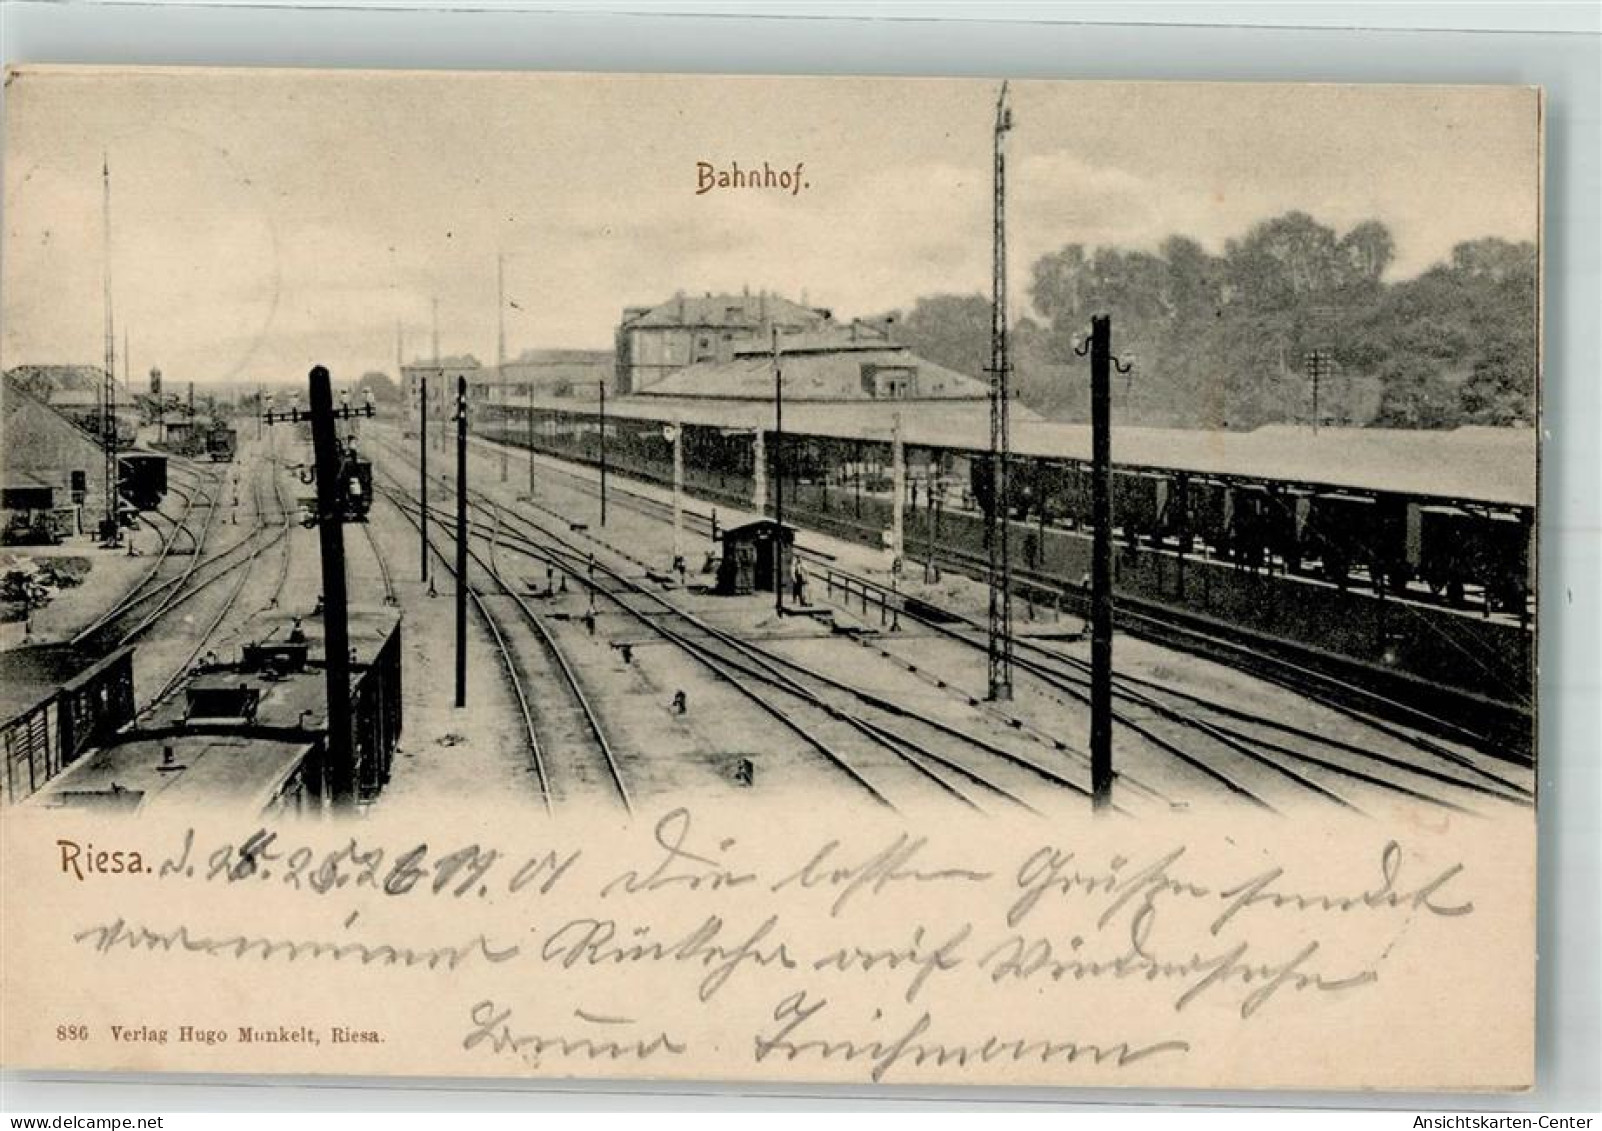 Bahnhof.
Riesa. d. 26. 11. 01 Die besten Grüße sendet
von meiner Rückkehr auf Wiedersehn
886 Verlag Hugo Munkelt, Riesa.
Bruno
Ansichtskarten-Center